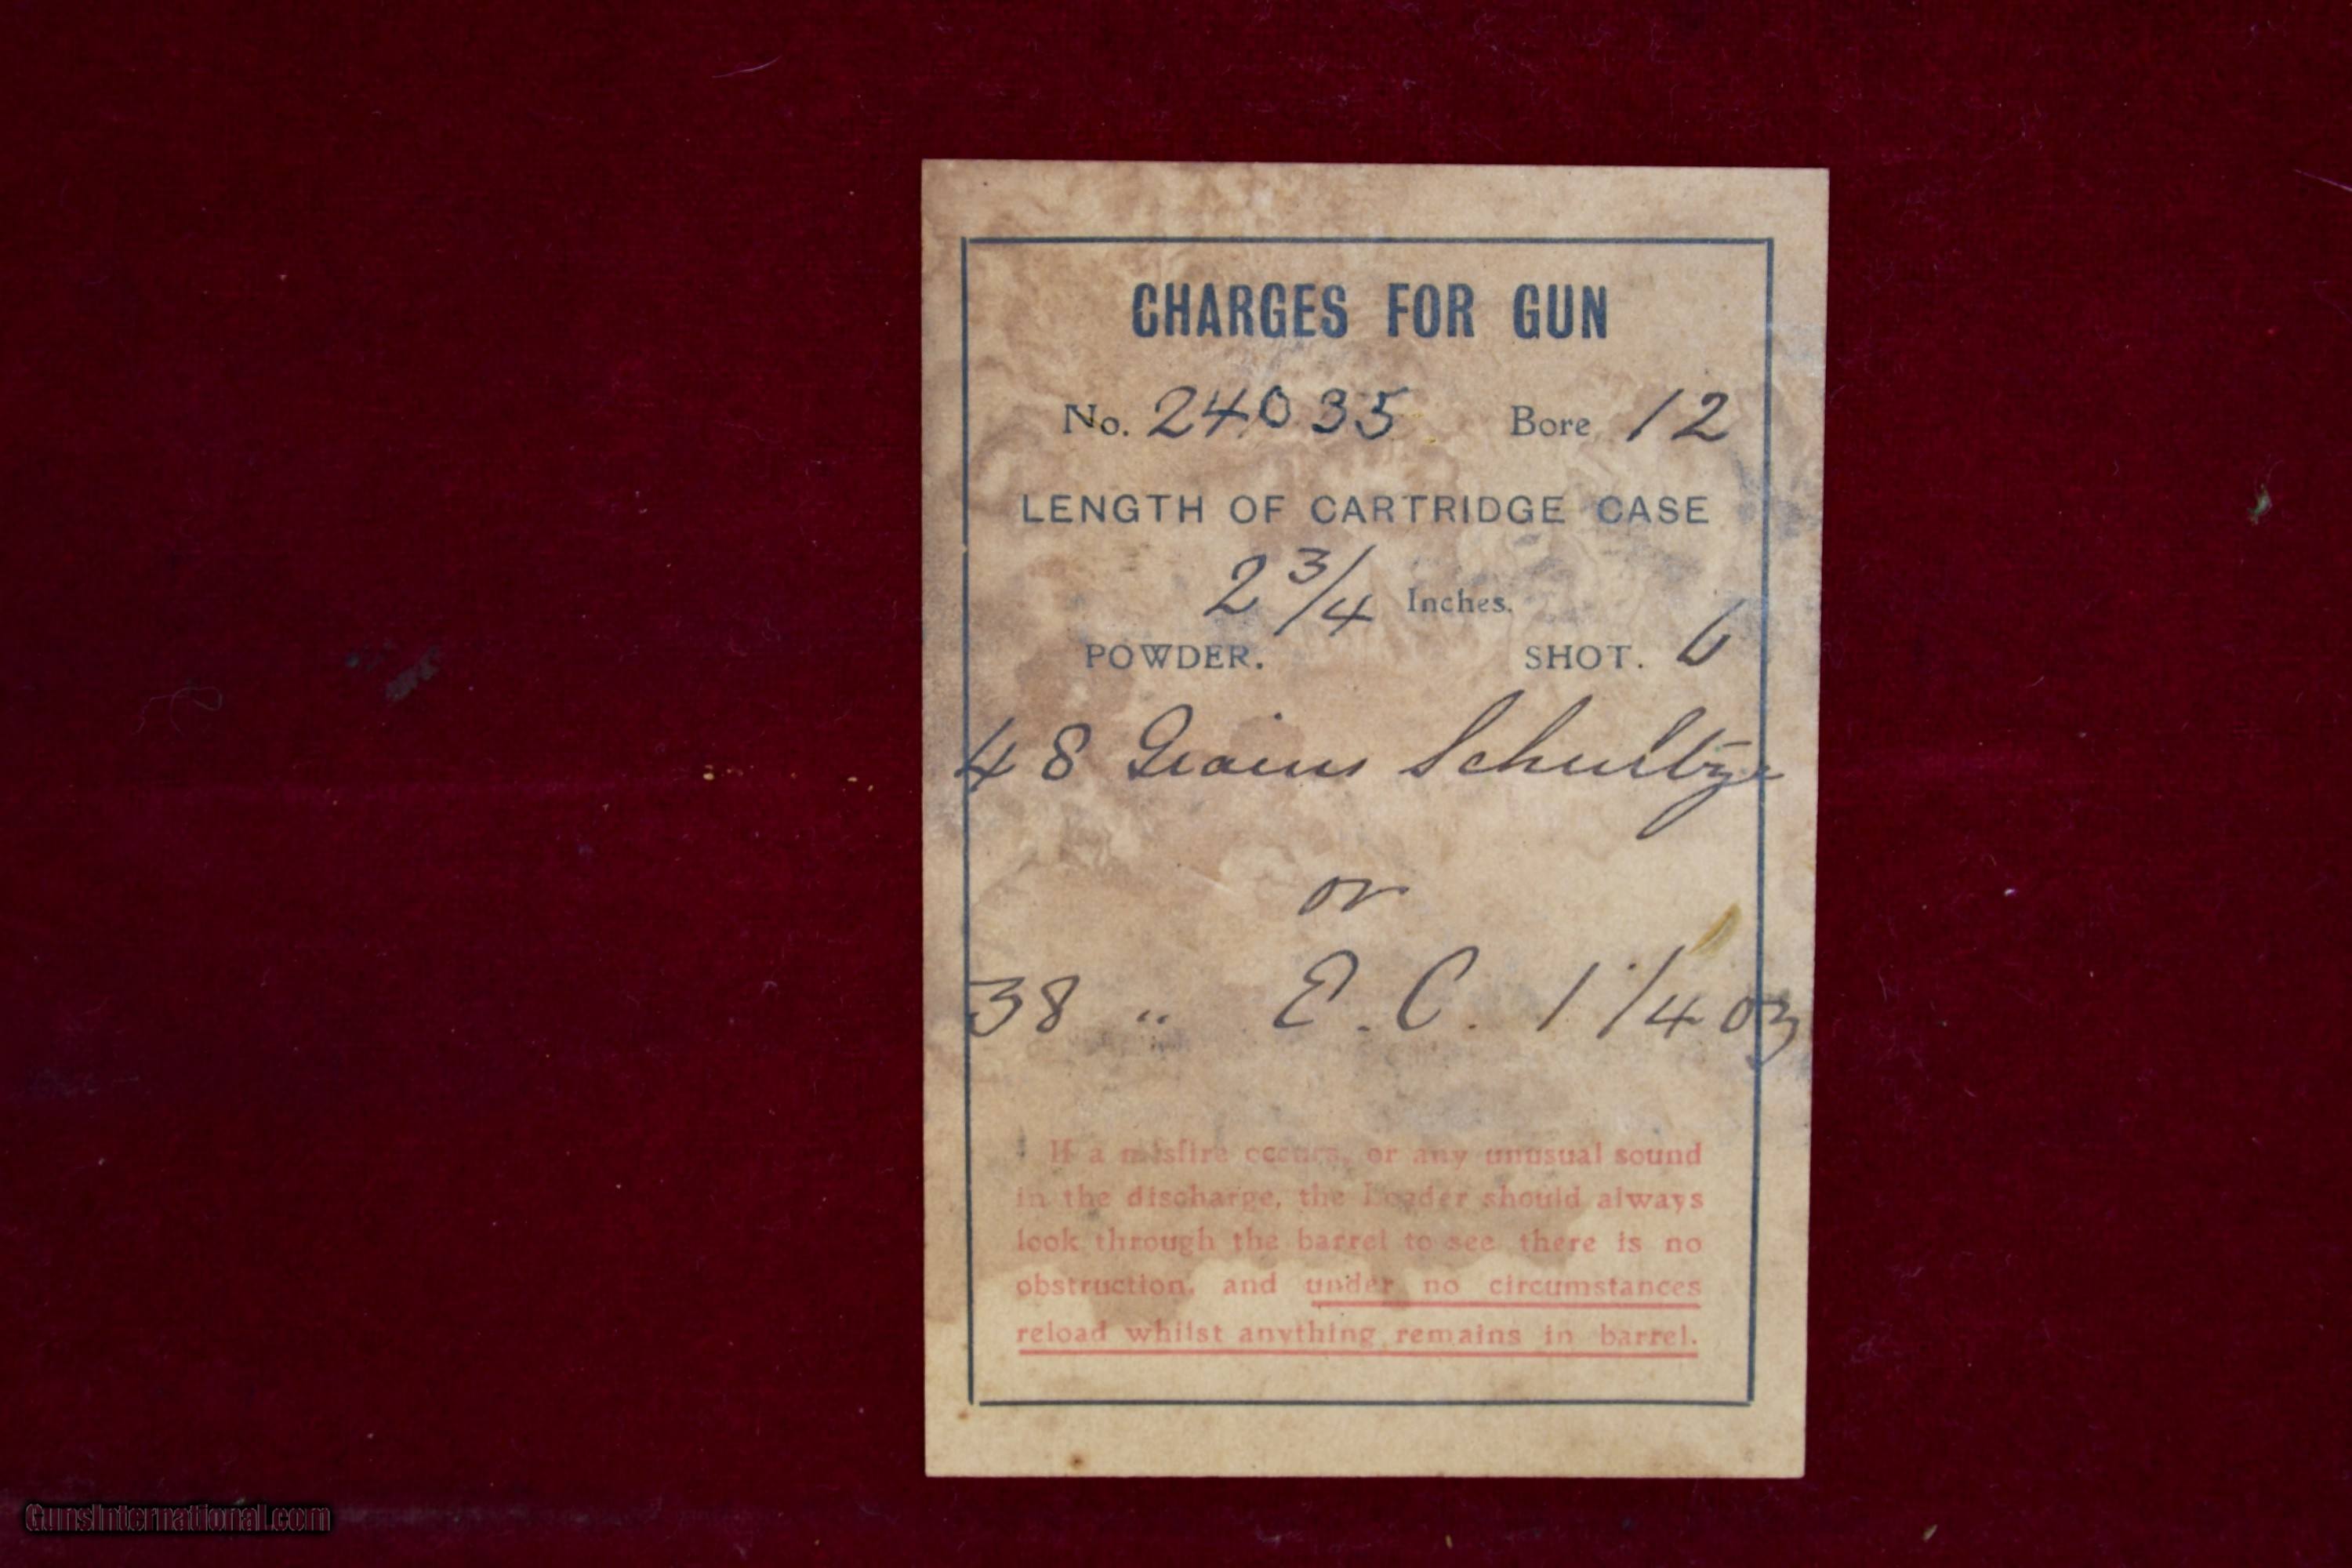 CHARGES FOR GUN
No. 24035 Bore 12
LENGTH OF CARTRIDGE CASE
2 3/4 Inches.
POWDER. SHOT. 6
48 Grains Schultze
or
38 " E.C. 1 1/4 oz
If a misfire occurs, or any unusual sound
in the discharge, the Loader should always
look through the barrel to see there is no
obstruction, and under no circumstances
reload whilst anything remains in barrel.
GunsInternational.com